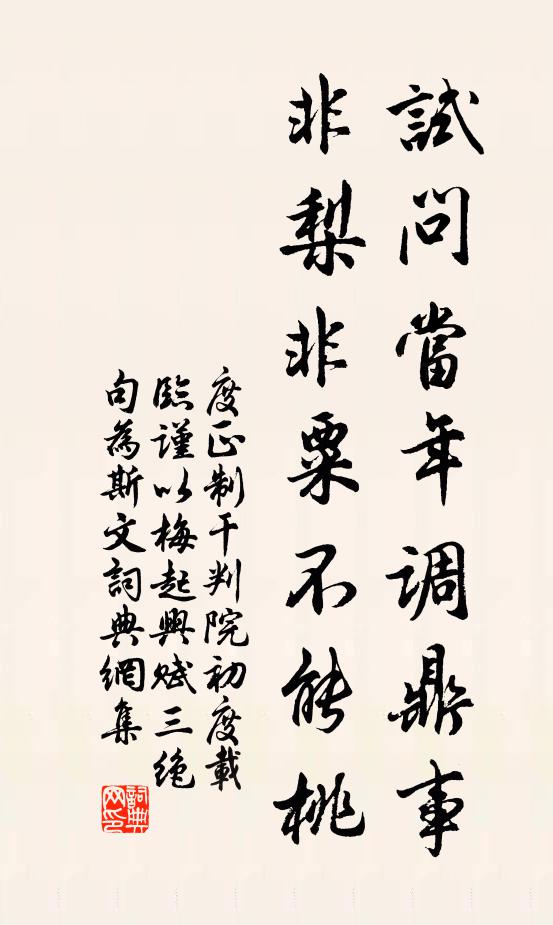 試問當年調鼎事
非梨非粟不能桃
度正制干判院初度載
臨謹以梅起興賦三絶
句為斯文詞典網集
詞典網印